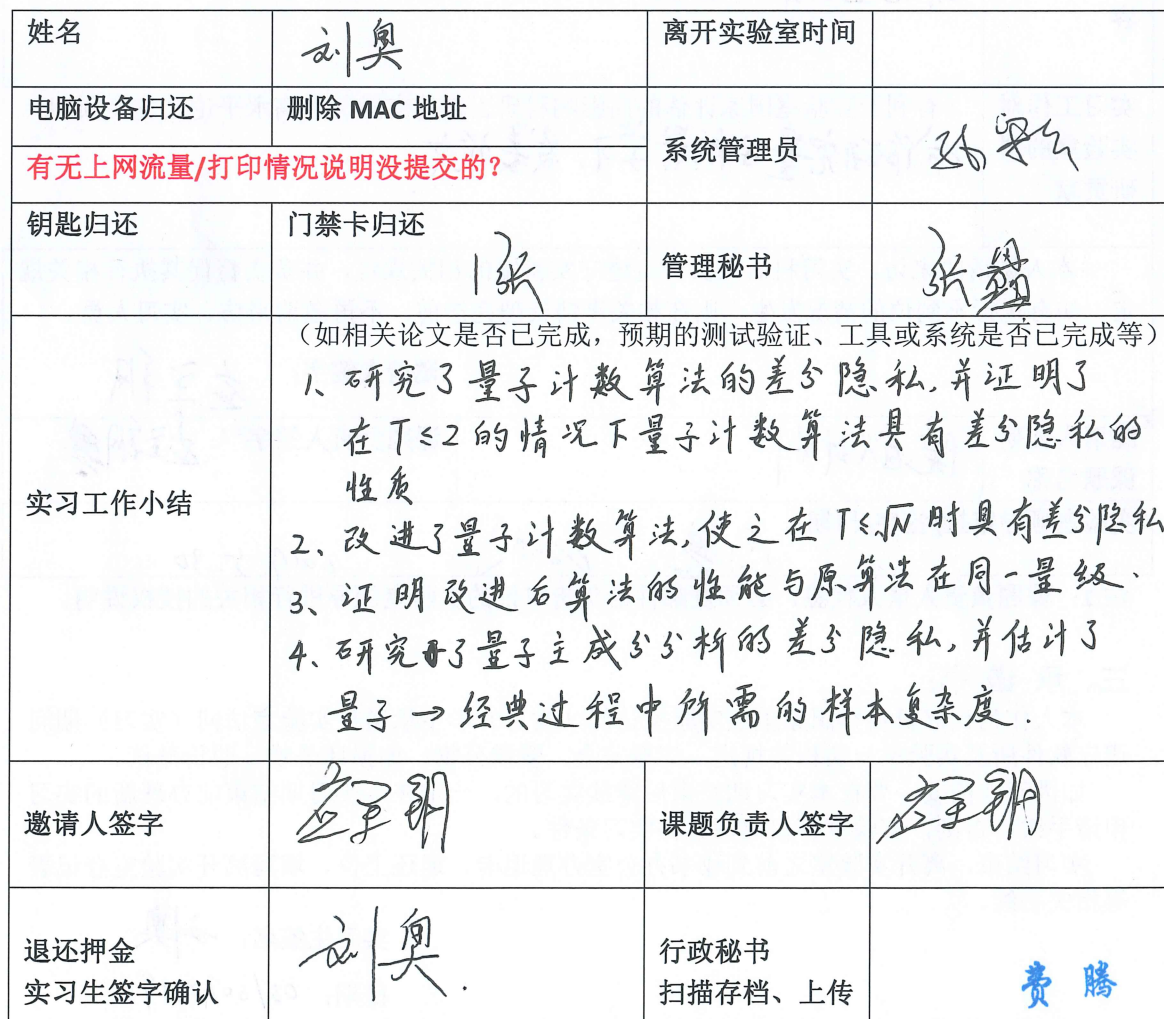 姓名 刘奥 离开实验室时间
电脑设备归还 删除 MAC 地址
有无上网流量/打印情况说明没提交的?
系统管理员
钥匙归还 门禁卡归还 管理秘书
1张 张
实习工作小结
(如相关论文是否已完成，预期的测试验证、工具或系统是否已完成等)
1、研究了量子计数算法的差分隐私,并证明了
在T≤2的情况下量子计数算法具有差分隐私的
性质
2、改进了量子计数算法,使之在T≤√N时具有差分隐私
3、证明改进后算法的性能与原算法在同一量级.
4、研究了量子主成分分析的差分隐私,并估计了
量子→经典过程中所需的样本复杂度.
邀请人签字 应圣钢 课题负责人签字 应圣钢
退还押金 刘奥. 行政秘书
实习生签字确认 扫描存档、上传 费腾